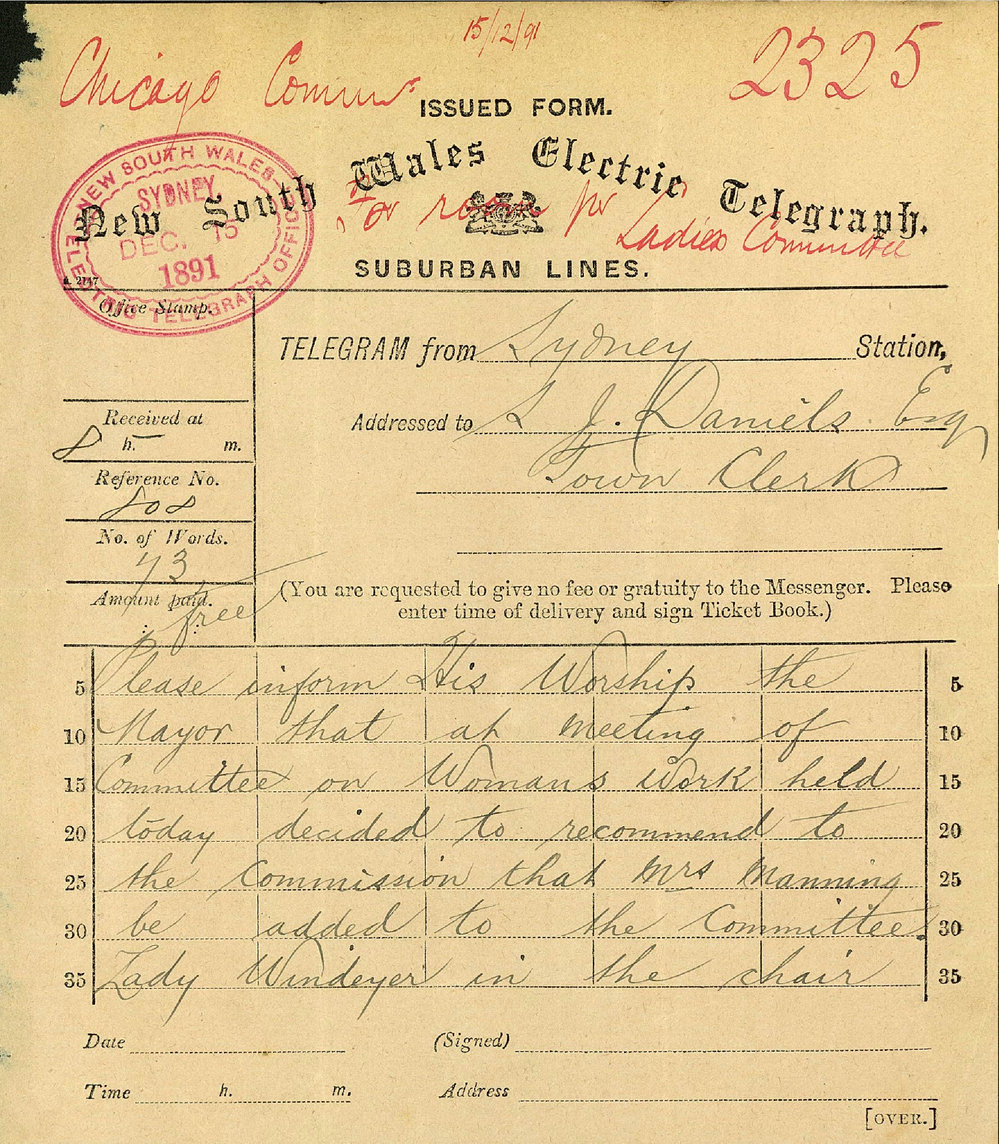 15/12/91
Chicago Commrs
2325
ISSUED FORM.
New South Wales Electric Telegraph.
For room for Ladies Committee
SUBURBAN LINES.
NEW SOUTH WALES
SYDNEY
DEC. 15
1891
ELECTRIC TELEGRAPH OFFICE
Office Stamp.
TELEGRAM from Sydney Station,
Addressed to S J. Daniels Esq
Town Clerk
Received at
8 h. m.
Reference No.
808
No. of Words.
73
Amount paid.
free
(You are requested to give no fee or gratuity to the Messenger. Please
enter time of delivery and sign Ticket Book.)
5 Please inform His Worship the 5
10 Mayor that at meeting of 10
15 Committee on Womans work held 15
20 today decided to recommend to 20
25 the Commission that Mrs Manning 25
30 be added to the Committee. 30
35 Lady Windeyer in the chair 35
Date (Signed)
Time h. m. Address
[OVER.]